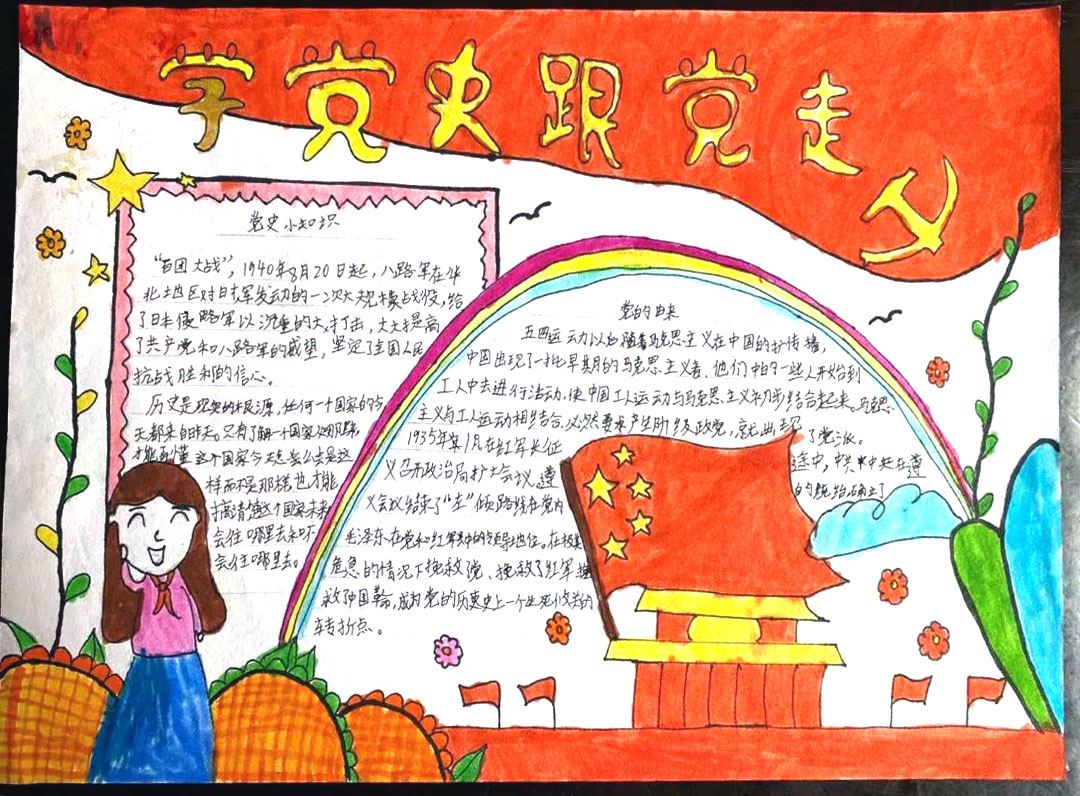 学党史跟党走
党史小知识
“百团大战”，1940年8月20日起，八路军在华
北地区对日军发动的一次大规模战役，给
了日本侵略军以沉重的大打击，大大提高
了共产党和八路军的威望，坚定了全国人民
抗战胜利的信心。
历史是现实的根源，任何一个国家的今
天都来自昨天。只有了解一个国家
才能看懂这个国家今天怎么会是这
样而不是那样，也才能
搞清楚这个国家未来
会往哪里去和不
会往哪里去。
党的由来
五四运动以后随着马克思主义在中国的传播，
中国出现了一批早期的马克思主义者，他们中的一些人开始到
工人中去进行活动，使中国工人运动与马克思主义初步结合起来。马克思
主义与工人运动相结合，必然要求产生阶级政党，就出现了党派。
1935年1月在红军长征途中，中共中央在遵
义召开政治局扩大会议，遵
义会议结束了“左”倾路线在党内的统治，确立了
毛泽东在党和红军中的领导地位。在极其
危急的情况下挽救党、挽救了红军挽
救了中国革命，成为党的历史上一个生死攸关的
转折点。